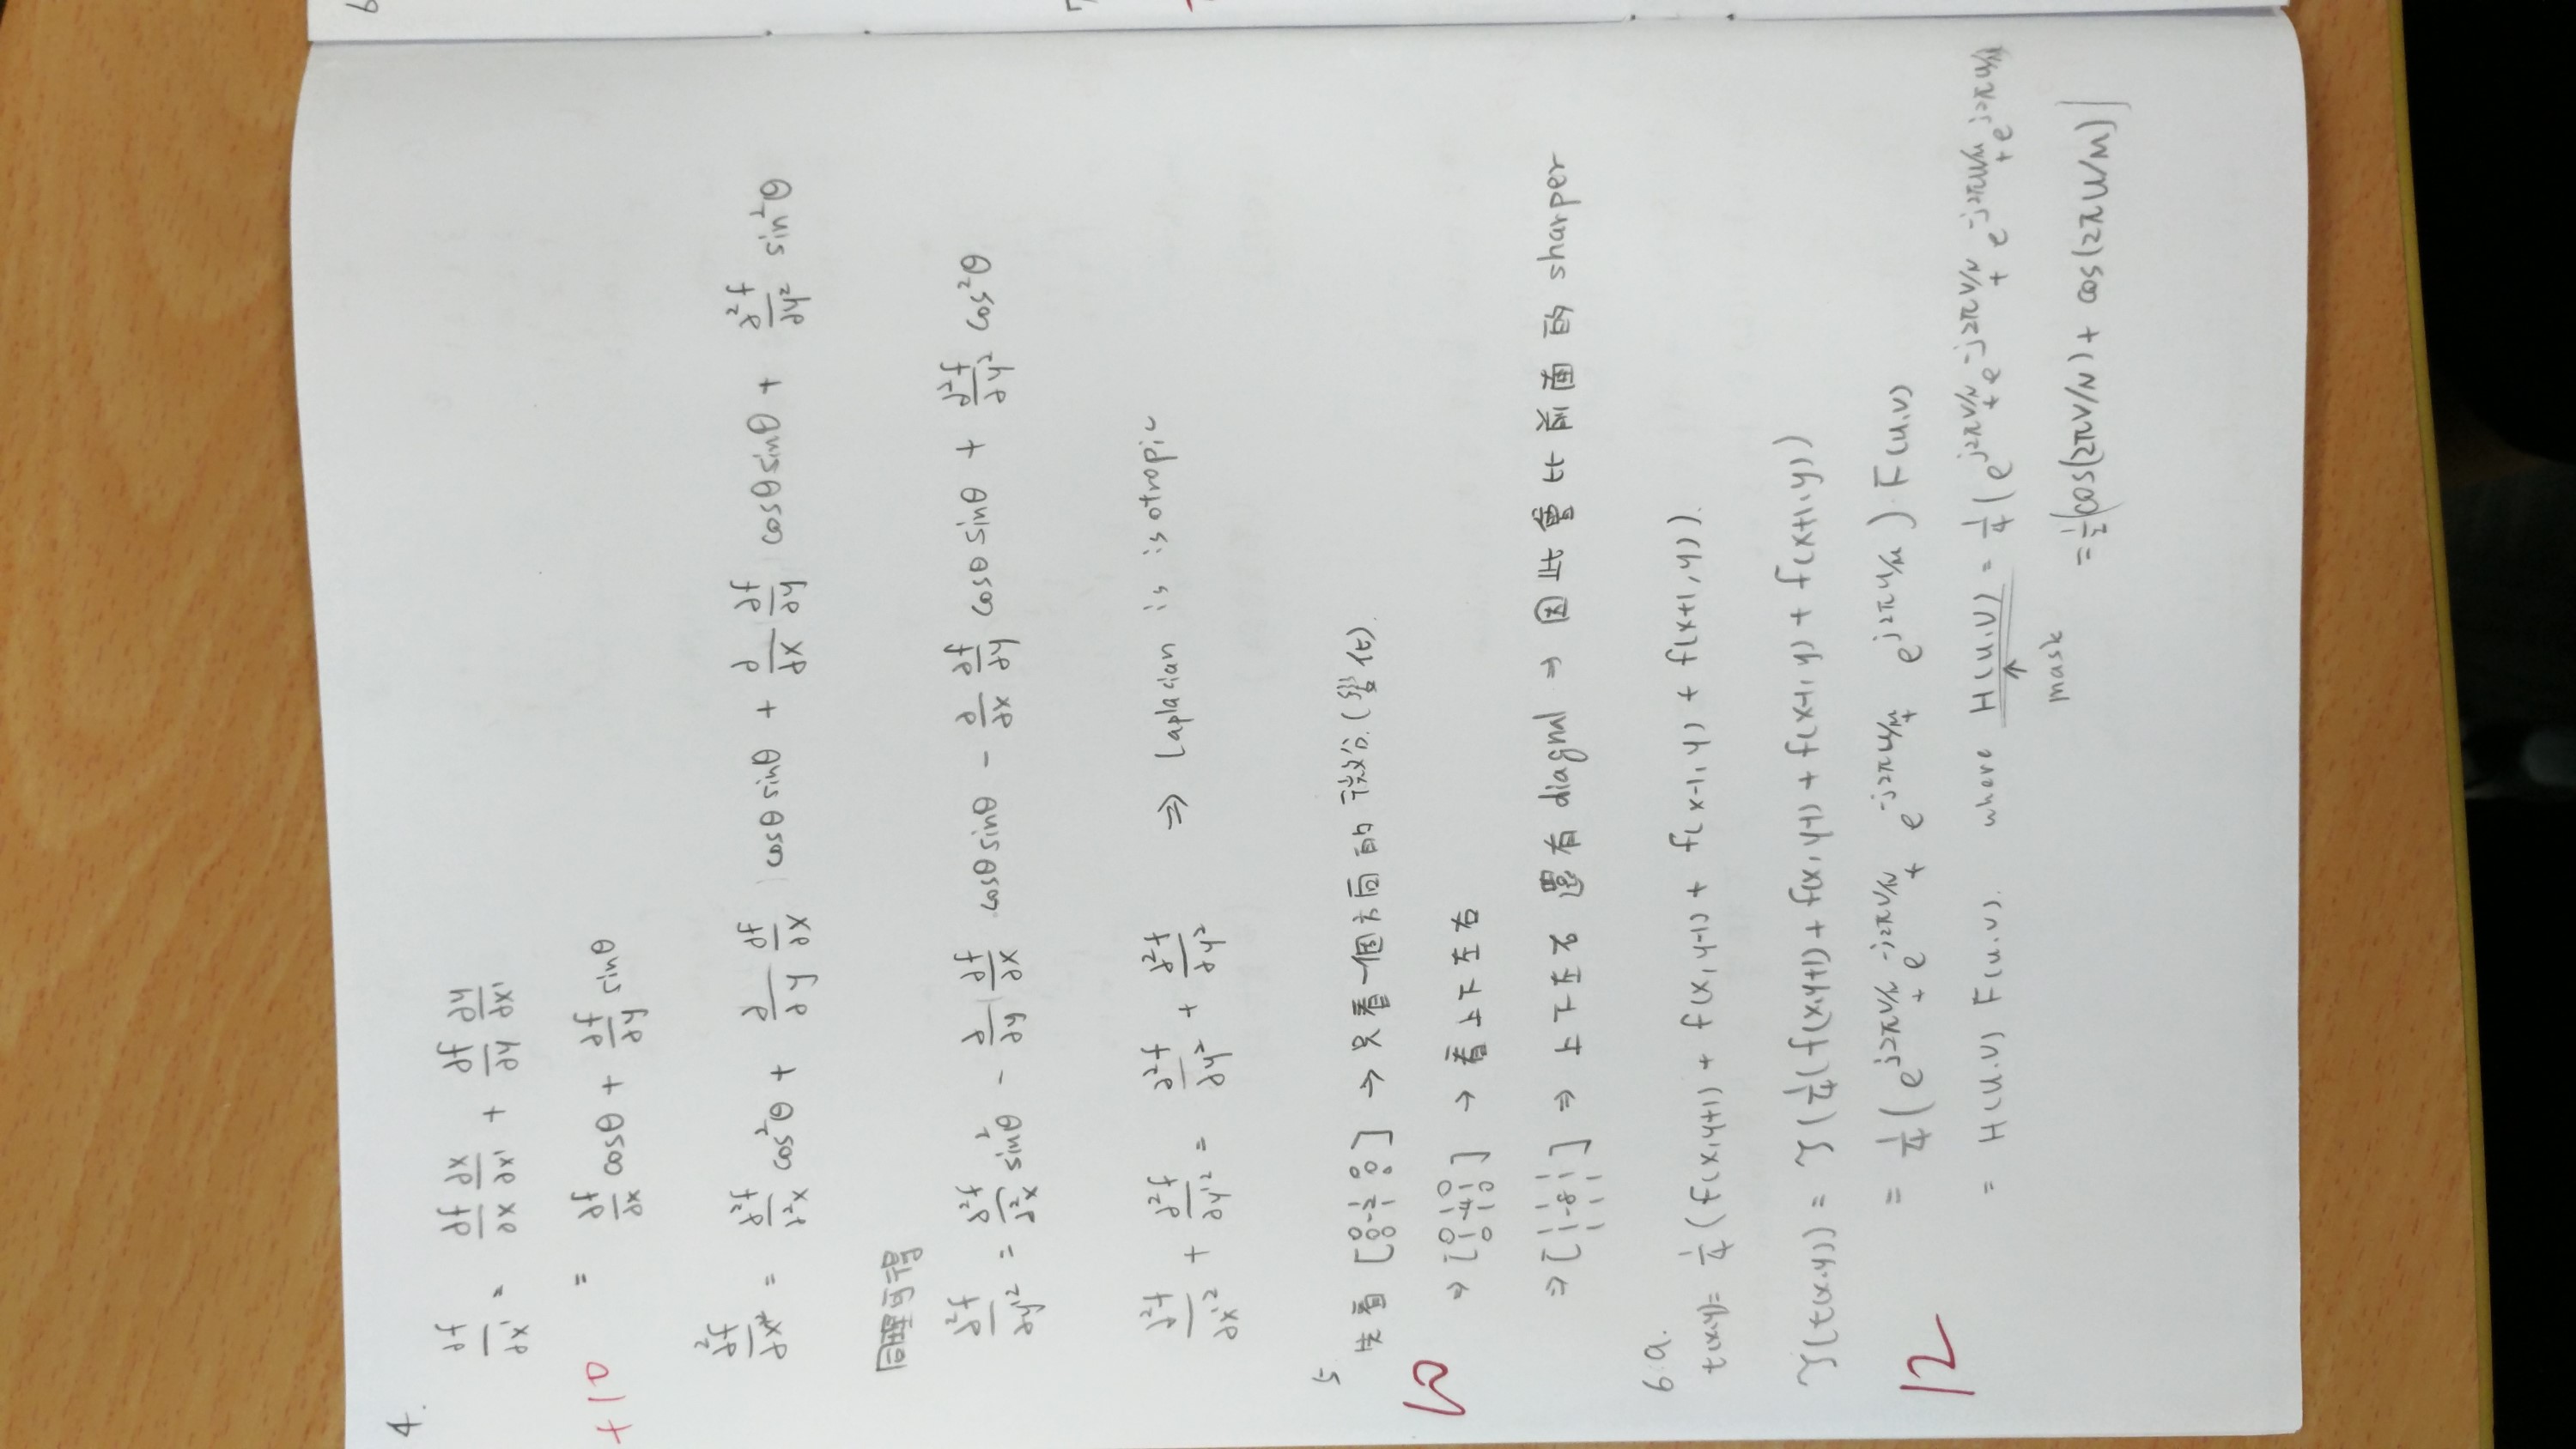 4.
∂f/∂x' = ∂f/∂x ∂x/∂x' + ∂f/∂y ∂y/∂x'
+10
= ∂f/∂x cosθ + ∂f/∂y sinθ
∂²f/∂x'² = ∂²f/∂²x cos²θ + ∂/∂y ∂f/∂x cosθ sinθ + ∂/∂x ∂f/∂y cosθ sinθ + ∂²f/∂y² sin²θ
同理可得
∂²f/∂y'² = ∂²f/∂²x sin²θ - ∂/∂y ∂f/∂x cosθ sinθ - ∂/∂x ∂f/∂y cosθ sinθ + ∂²f/∂y² cos²θ
∂²f/∂x'² + ∂²f/∂y'² = ∂²f/∂y² + ∂²f/∂y² ⇒ Laplacian is isotropic
5
先看 [0 1 0; 0 -2 0; 0 1 0] → 只看一個方向的微分(變化).
10
⇒ [0 1 0; 1 -4 1; 0 1 0] → 看上下左右
⇒ [1 1 1; 1 -8 1; 1 1 1] ⇒ 上下左右還有 diagnal ⇒ 因此會比前面的 sharper
6.a.
t(x,y) = 1/4 (f(x,y+1) + f(x,y-1) + f(x-1,y) + f(x+1,y)).
ℑ(t(x,y)) = ℑ(1/4(f(x,y+1) + f(x,y-1) + f(x-1,y) + f(x+1,y))
= 1/4 (e^{j2πv/N} + e^{-j2πv/N} + e^{-j2πu/M} + e^{j2πu/M}) F(u,v)
12
= H(u,v) F(u,v). where H(u,v) = 1/4 (e^{j2πv/N} + e^{-j2πv/N} + e^{-j2πu/M} + e^{j2πu/M}
↑
mask
= 1/2 [cos(2πv/N) + cos(2πu/M)]
6